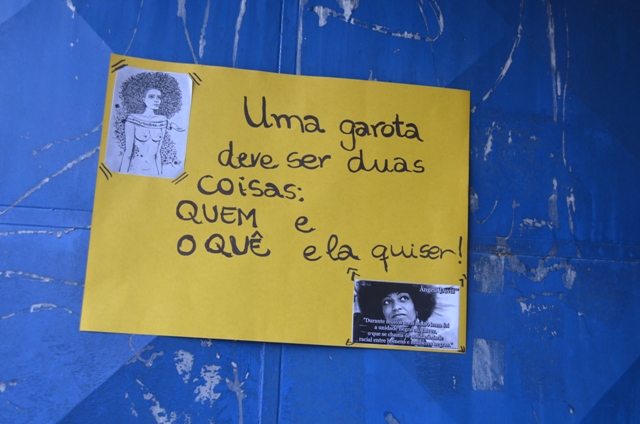 Uma garota
deve ser duas
coisas:
QUEM e
O QUÊ ela quiser!
Angela Davis
"Durante
a unidade
o que se chama
racial entre homens e